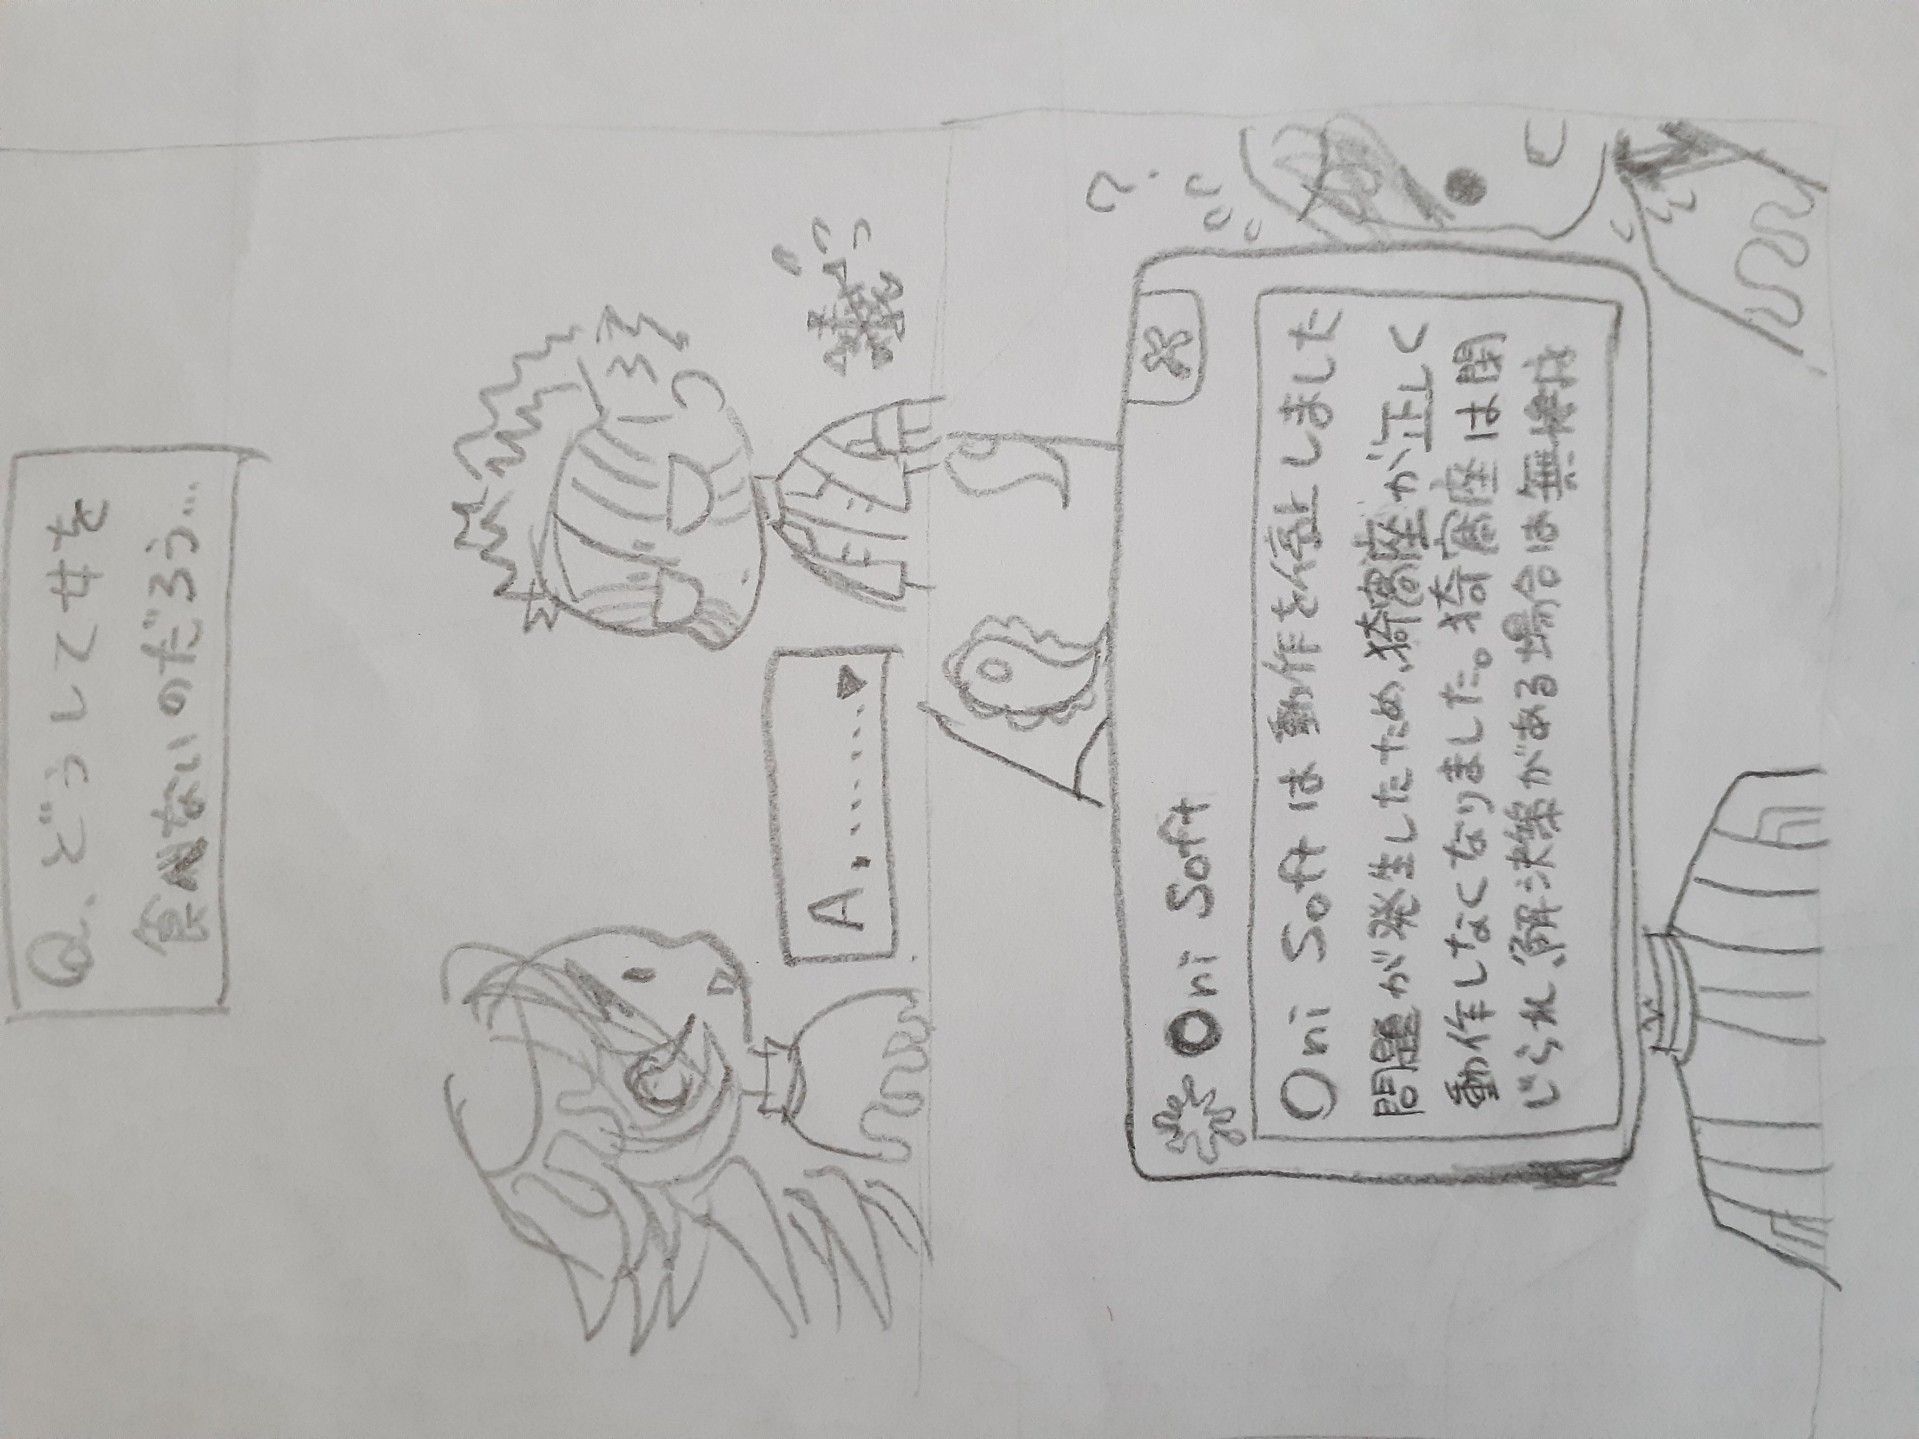 Q、どうして女を
食べないのだろう…
A、……▼
?
Oni Soft
Oni Soft は動作を停止しました
問題が発生したため、猗窩座が正しく
動作しなくなりました。猗窩座は閉
じられ、解決策がある場合は無惨様